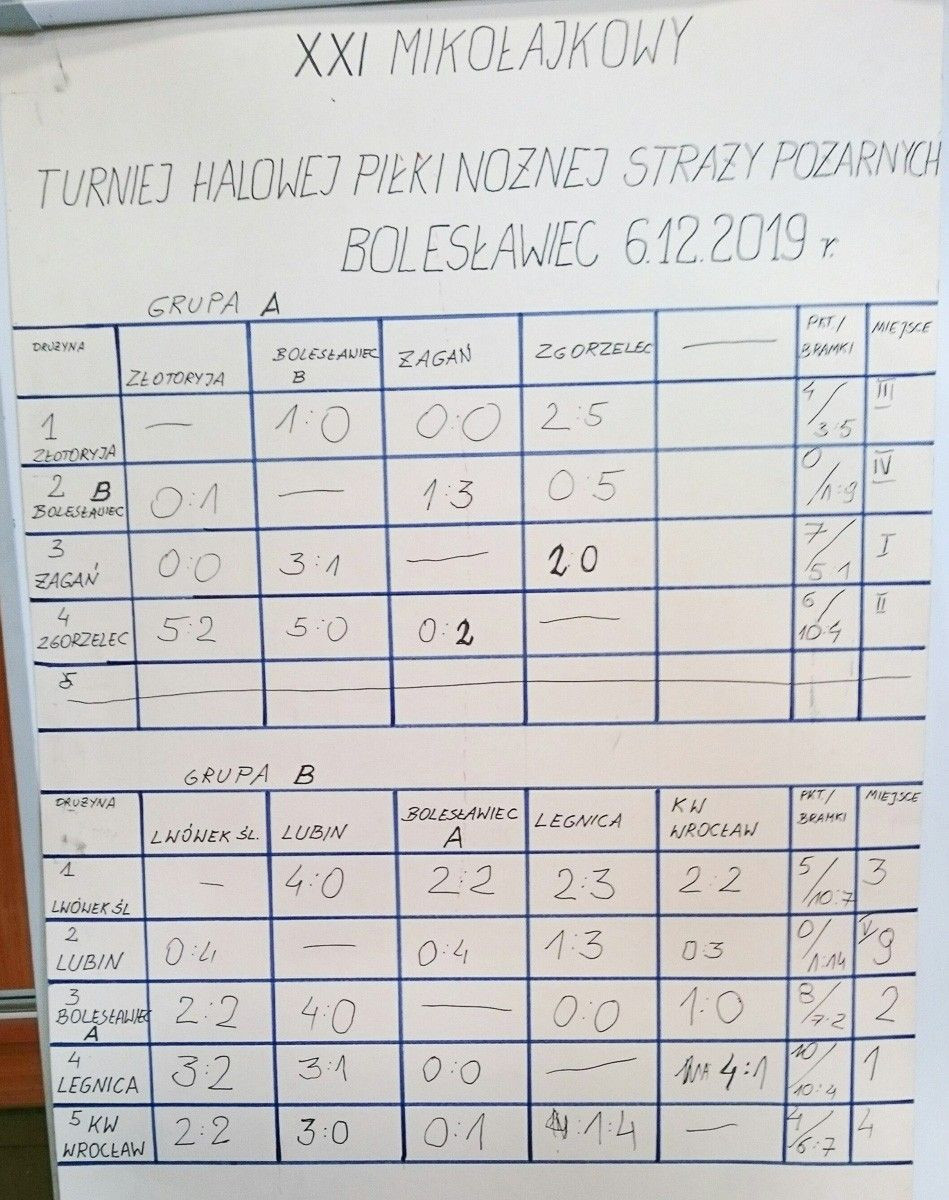 XXI MIKOŁAJKOWY
TURNIEJ HALOWEJ PIŁKI NOŻNEJ STRAŻY POŻARNYCH
BOLESŁAWIEC 6.12.2019 r.
GRUPA A
DRUŻYNA ZŁOTORYJA BOLESŁAWIEC B ŻAGAŃ ZGORZELEC — PKT/BRAMKI MIEJSCE
1 ZŁOTORYJA — 1:0 0:0 2:5 4/3:5 III
2 B BOLESŁAWIEC 0:1 — 1:3 0:5 0/1:9 IV
3 ŻAGAŃ 0:0 3:1 — 2 0 7/5 1 I
4 ZGORZELEC 5:2 5:0 0:2 — 6/10:4 II
5
GRUPA B
DRUŻYNA LWÓWEK ŚL. LUBIN BOLESŁAWIEC A LEGNICA KW WROCŁAW PKT/BRAMKI MIEJSCE
1 LWÓWEK ŚL — 4:0 2:2 2:3 2:2 5/10:7 3
2 LUBIN 0:4 — 0:4 1:3 0:3 0/1:14 V
3 BOLESŁAWIEC A 2:2 4:0 — 0:0 1:0 8/7:2 2
4 LEGNICA 3:2 3:1 0:0 — 4:1 10/10:4 1
5 KW WROCŁAW 2:2 3:0 0:1 1:4 — 4/6:7 4